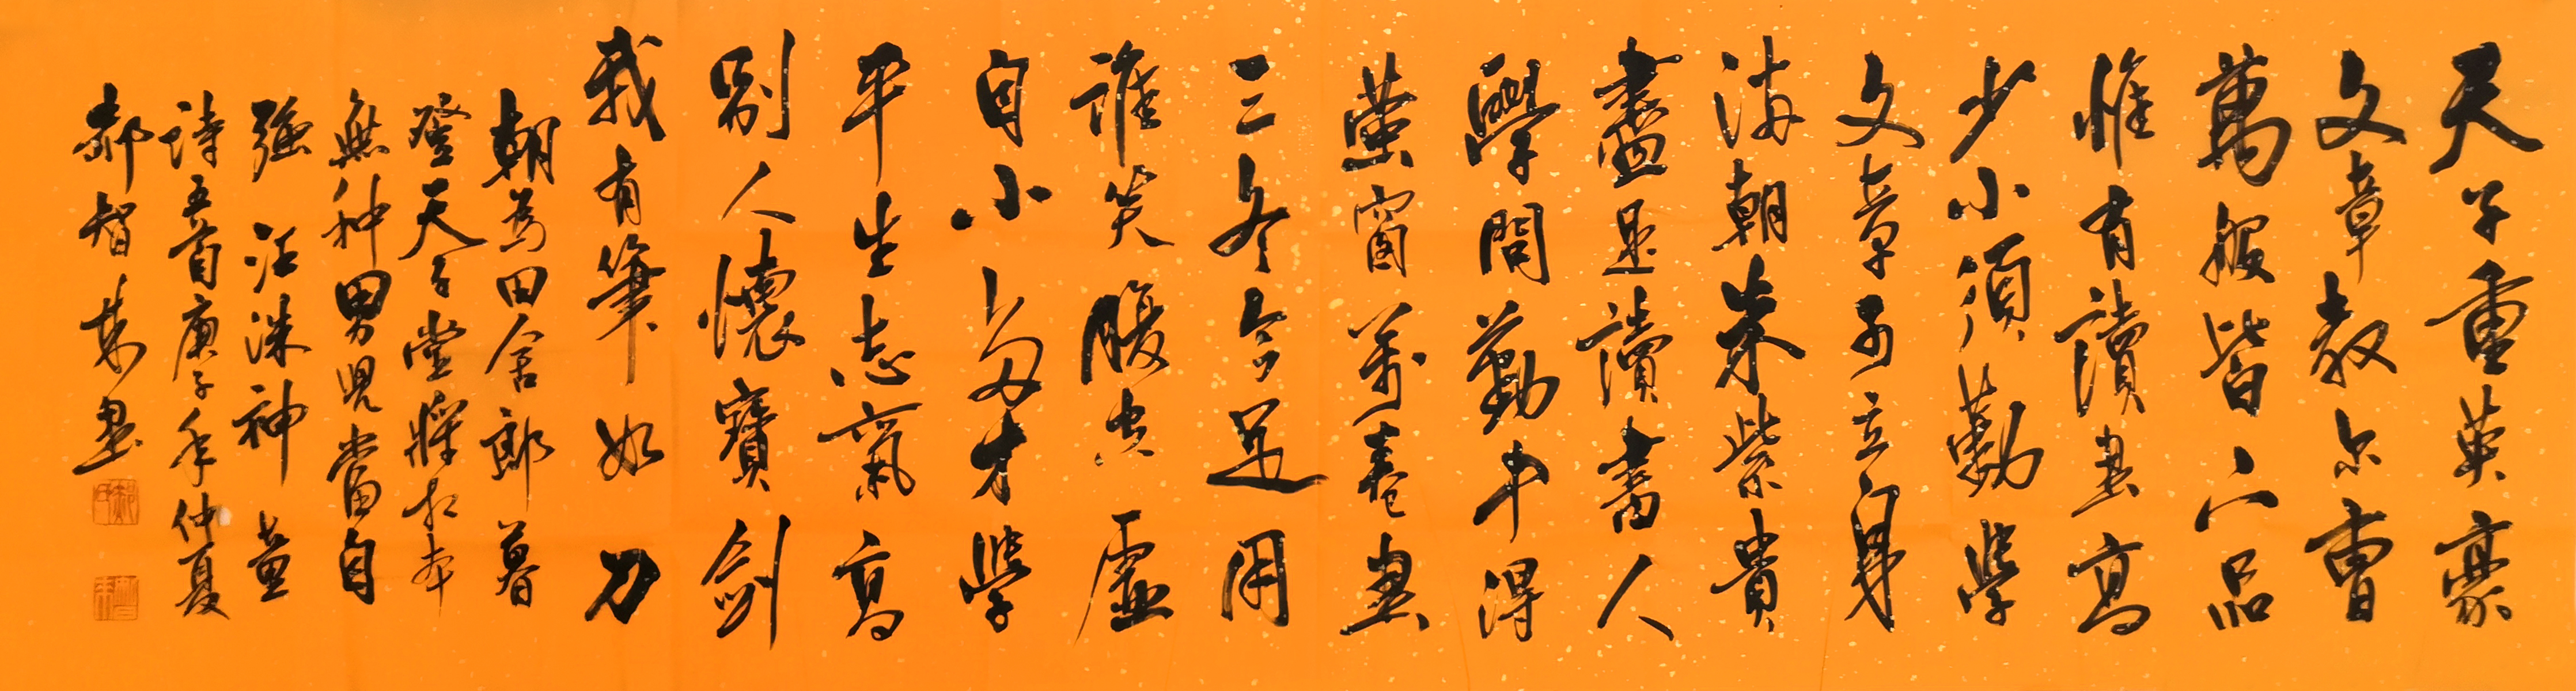 天子重英豪
文章教尔曹
萬般皆下品
惟有讀書高
少小須勤學
文章可立身
滿朝朱紫貴
盡是讀書人
學問勤中得
螢窗萬卷書
三冬今足用
誰笑腹中虛
自小多才學
平生志氣高
別人懷寶劍
我有筆如刀
朝為田舍郎暮
登天子堂將相本
無种男兒當自
強 汪洙神童
詩五首庚子年仲夏
郝智 書